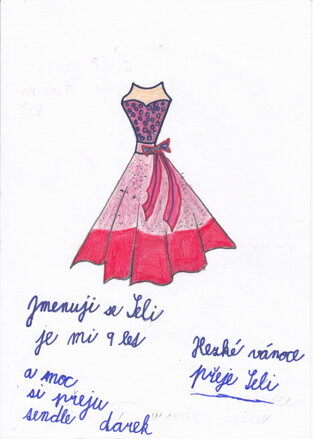 Jmenuji se Leli
je mi 9 let
a moc
si přeju
sendle dárek
Hezké vánoce
přeje Leli